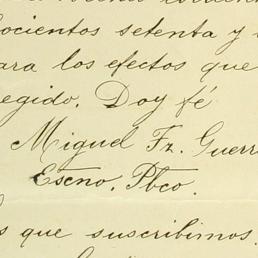 ocientos setenta y
ara los efectos que
egido. Doy fé
Miguel Fz. Guerr
Escno. Pbco.
s que suscribimos.